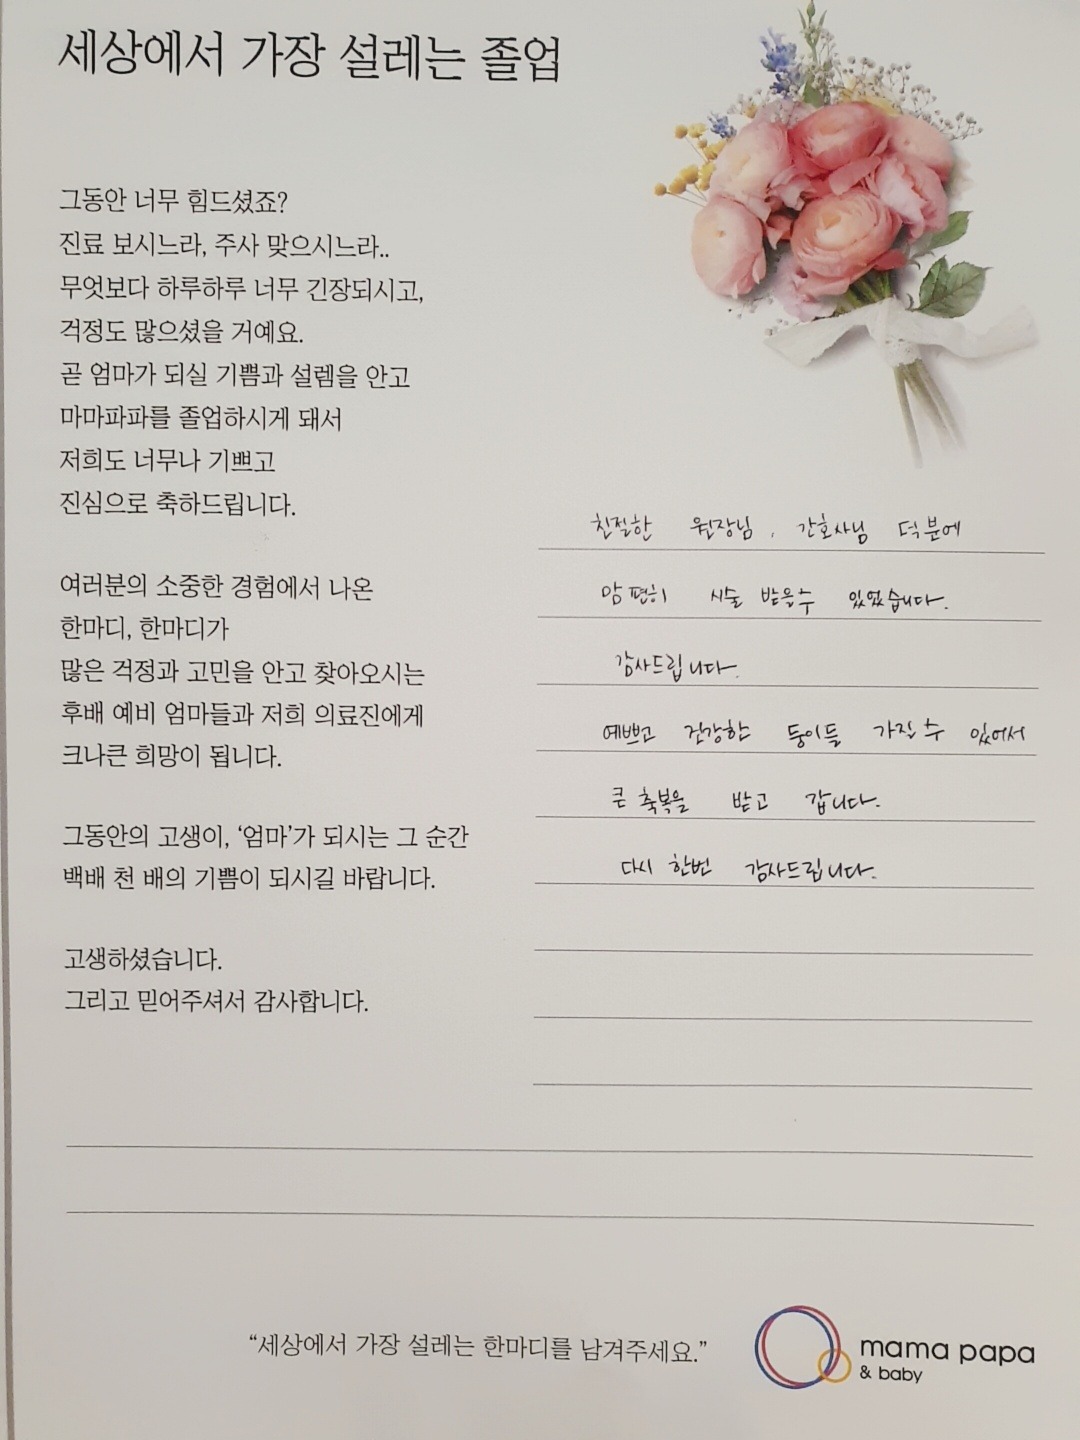 세상에서 가장 설레는 졸업
그동안 너무 힘드셨죠?
진료 보시느라, 주사 맞으시느라..
무엇보다 하루하루 너무 긴장되시고,
걱정도 많으셨을 거예요.
곧 엄마가 되실 기쁨과 설렘을 안고
마마파파를 졸업하시게 돼서
저희도 너무나 기쁘고
진심으로 축하드립니다.
여러분의 소중한 경험에서 나온
한마디, 한마디가
많은 걱정과 고민을 안고 찾아오시는
후배 예비 엄마들과 저희 의료진에게
크나큰 희망이 됩니다.
그동안의 고생이, ‘엄마’가 되시는 그 순간
백배 천 배의 기쁨이 되시길 바랍니다.
고생하셨습니다.
그리고 믿어주셔서 감사합니다.
친절한 원장님, 간호사님 덕분에
맘 편히 시술 받을수 있었습니다.
감사드립니다.
예쁘고 건강한 둥이들 가질 수 있어서
큰 축복을 받고 갑니다.
다시 한번 감사드립니다.
“세상에서 가장 설레는 한마디를 남겨주세요.”
mama papa
& baby